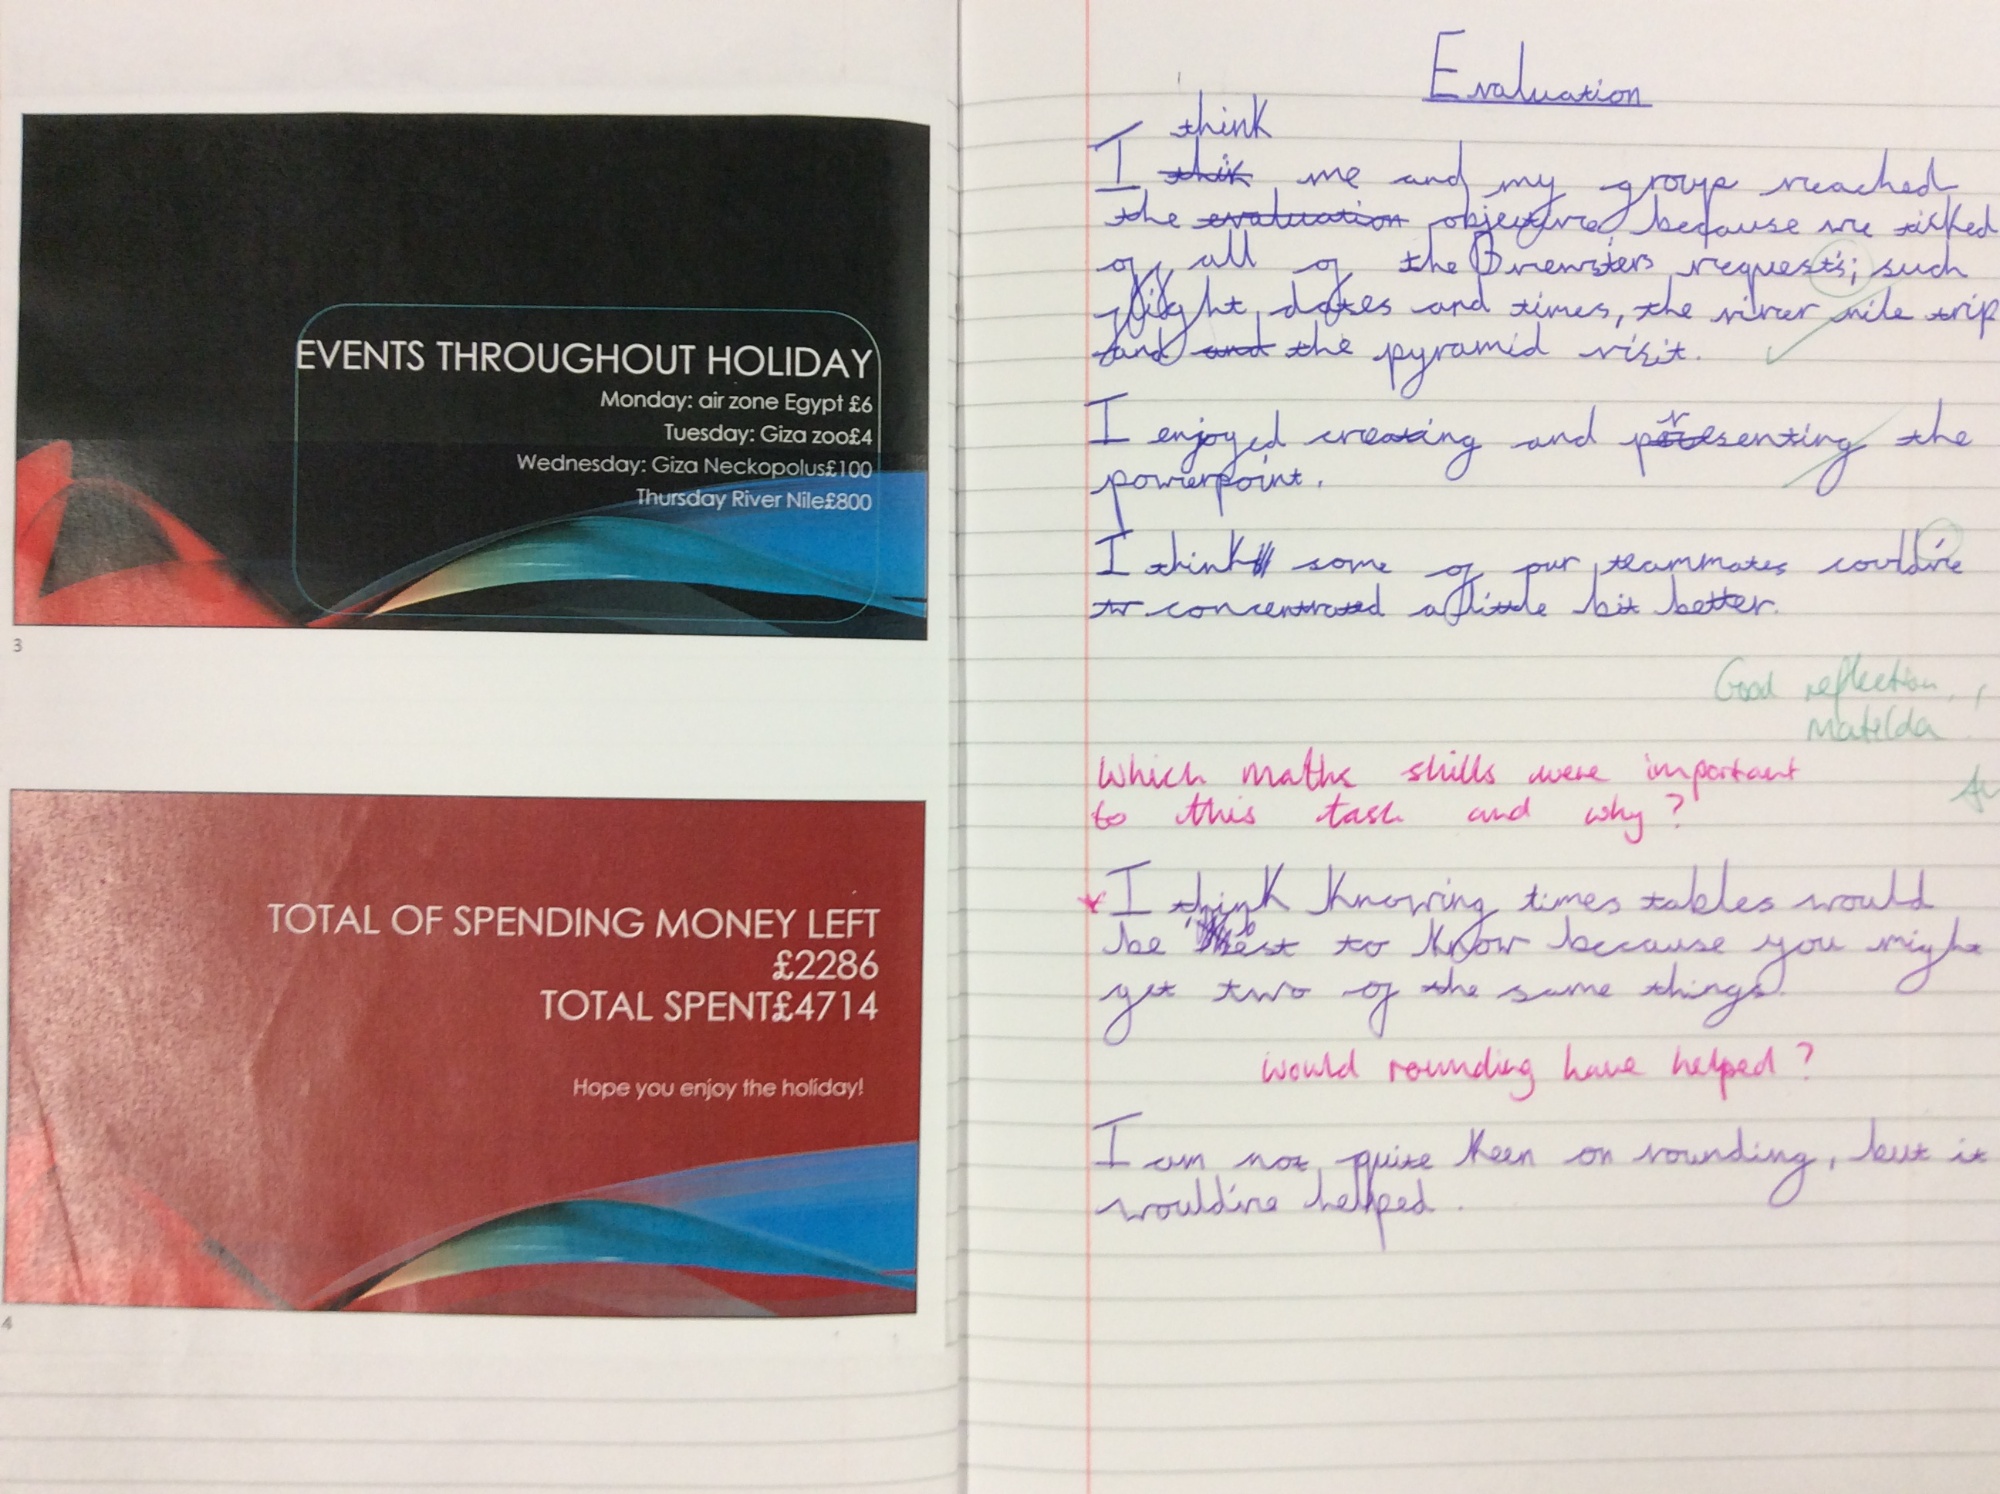 EVENTS THROUGHOUT HOLIDAY
Monday: air zone Egypt £6
Tuesday: Giza zoo£4
Wednesday: Giza Neckopolus£100
Thursday River Nile£800
3
TOTAL OF SPENDING MONEY LEFT
£2286
TOTAL SPENT£4714
Hope you enjoy the holiday!
4
Evaluation
think
I thik me and my group reached
the evaluation objective, because we ticked
of all of the Brewsters requests; such
flight dates and times, the river nile trip
and and the pyramid visit.
I enjoyed creating and presenting the
powerpoint.
I think some of our teammates could've
concentrated a little bit better.
Good reflection,
Matilda
Which maths skills were important
to this task and why?
I think knowing times tables would
be best to know because you might
get two of the same things.
Would rounding have helped?
I am not quite keen on rounding, but it
would've helped.